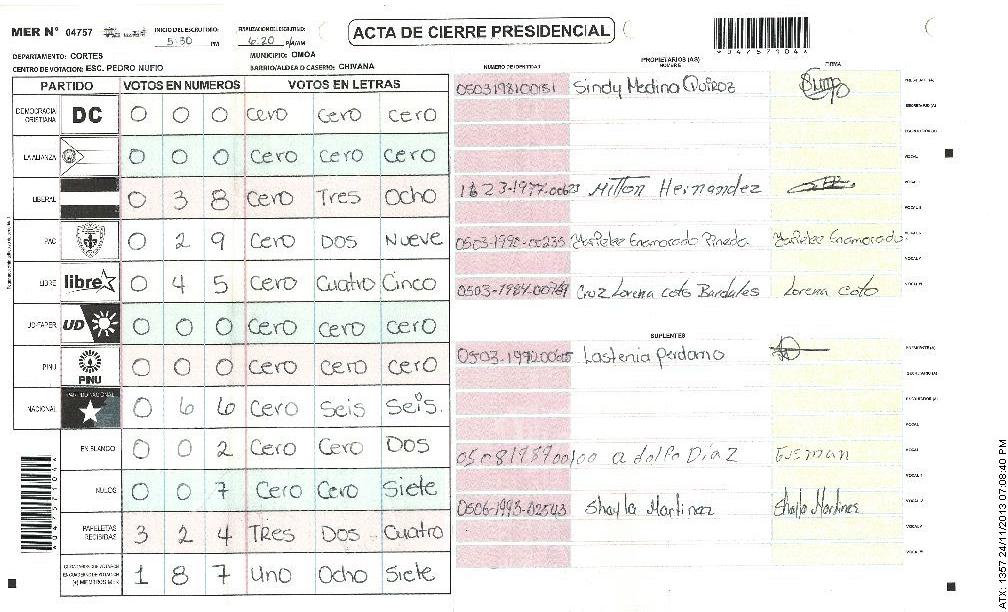 MER Nº 04757 INICIO DEL ESCRUTINIO: 5:30 PM FINALIZACION DEL ESCRUTINIO: 6:20 P/M/AM
ACTA DE CIERRE PRESIDENCIAL
DEPARTAMENTO: CORTES MUNICIPIO: OMOA
CENTRO DE VOTACION: ESC. PEDRO NUFIO BARRIO/ALDEA O CASERIO: CHIVANA
PARTIDO VOTOS EN NUMEROS VOTOS EN LETRAS
DEMOCRACIA CRISTIANA DC 0 0 0 Cero Cero Cero
LA ALIANZA 0 0 0 Cero Cero Cero
LIBERAL 0 3 8 Cero Tres Ocho
PAC 0 2 9 Cero Dos Nueve
LIBRE libre 0 4 5 Cero Cuatro Cinco
UD-FAPER UD 0 0 0 Cero Cero Cero
PINU PINU 0 0 0 Cero Cero Cero
NACIONAL PARTIDO NACIONAL 0 6 6 Cero Seis Seis.
EN BLANCO 0 0 2 Cero Cero Dos
NULOS 0 0 7 Cero Cero Siete
PAPELETAS RECIBIDAS 3 2 4 Tres Dos Cuatro
1 8 7 Uno Ocho Siete
NUMERO DE IDENTIDAD PROPIETARIOS (AS) NOMBRE FIRMA
0503198100151 Sindy Medina Quiroz
SECRETARIO (A)
VOCAL
Milton Hernandez
0503-1990-00235 Enamorado Pineda Enamorado
0503-1984-00769 Cruz Lorena Coto Bardales Lorena Coto
SUPLENTES
Lastenia Perdomo
SECRETARIO (A)
ESCRUTADOR (A)
VOCAL
adolfo Díaz
0506-1993-02543 Shayla Martinez Shayla Martinez
ATX: 1357 24/11/2013 07:08:40 PM